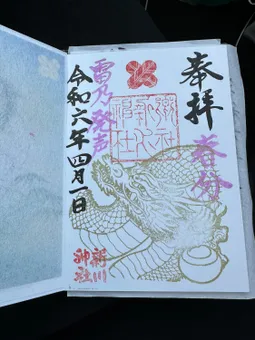 奉拝
春分
雷乃発声
令和六年四月一日
新川
神社